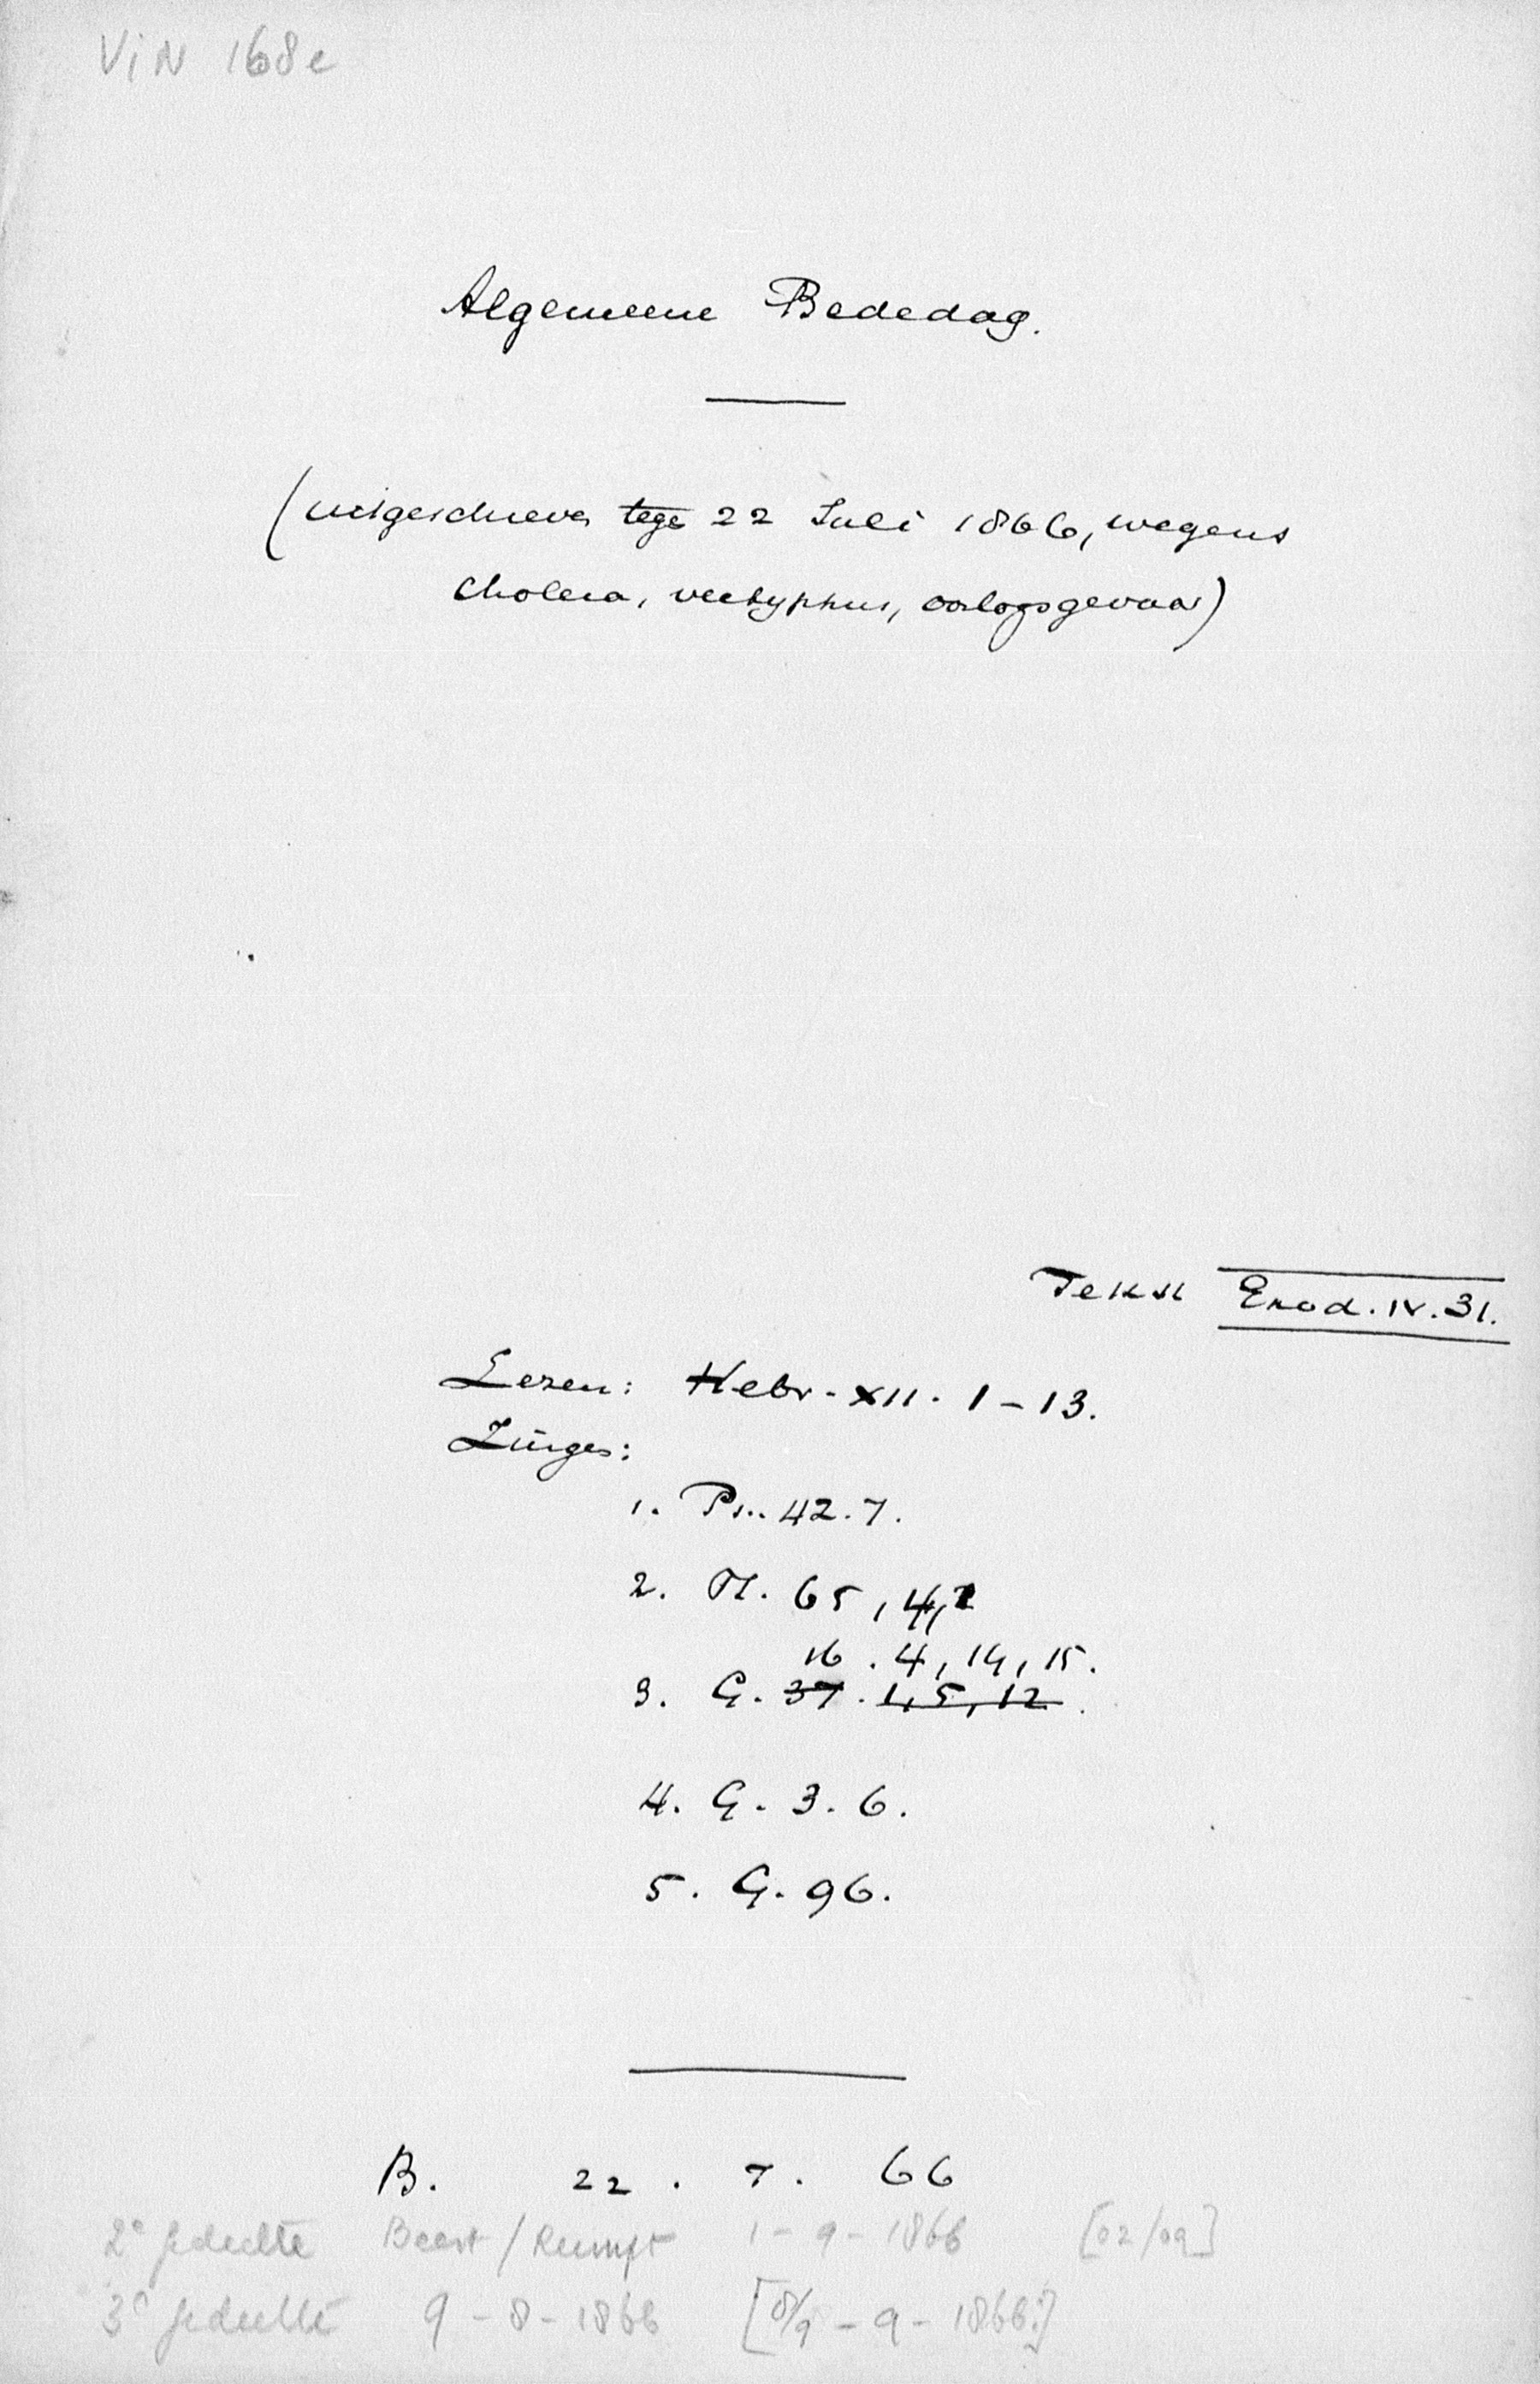 ViN 168e
Algemeene Bededag.
(uitgeschreven tege 22 Juli 1866, wegens
Cholera, veetyphus, oorlogsgevaar)
Tekst Exod. IV. 31.
Lezen: Hebr. XII. 1 - 13.
Zingen:
1. Ps. 42. 7.
2. Ps. 65, 4, 2
16. 4, 14, 15.
3. G. 37. 1, 5, 12.
4. G. 3. 6.
5. G. 96.
B. 22. 7. 66
2e gedeelte Beest / Rumpt 1 - 9 - 1866 [02/09]
3e gedeelte 9 - 8 - 1866 [8/9 - 9 - 1866:]